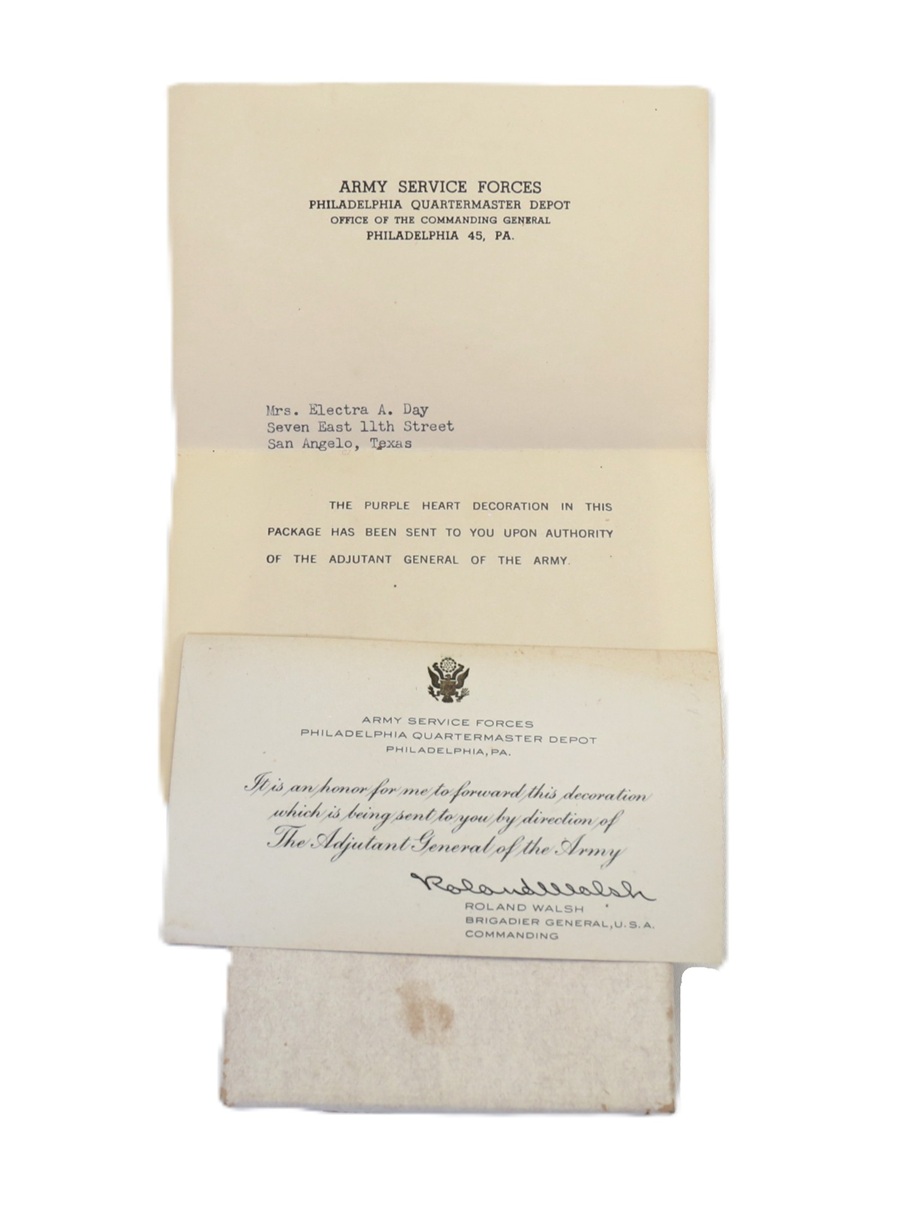 ARMY SERVICE FORCES
PHILADELPHIA QUARTERMASTER DEPOT
OFFICE OF THE COMMANDING GENERAL
PHILADELPHIA 45, PA.
Mrs. Electra A. Day
Seven East 11th Street
San Angelo, Texas
THE PURPLE HEART DECORATION IN THIS
PACKAGE HAS BEEN SENT TO YOU UPON AUTHORITY
OF THE ADJUTANT GENERAL OF THE ARMY.
ARMY SERVICE FORCES
PHILADELPHIA QUARTERMASTER DEPOT
PHILADELPHIA, PA.
It is an honor for me to forward this decoration
which is being sent to you by direction of
The Adjutant General of the Army
Roland Walsh
ROLAND WALSH
BRIGADIER GENERAL, U.S.A.
COMMANDING